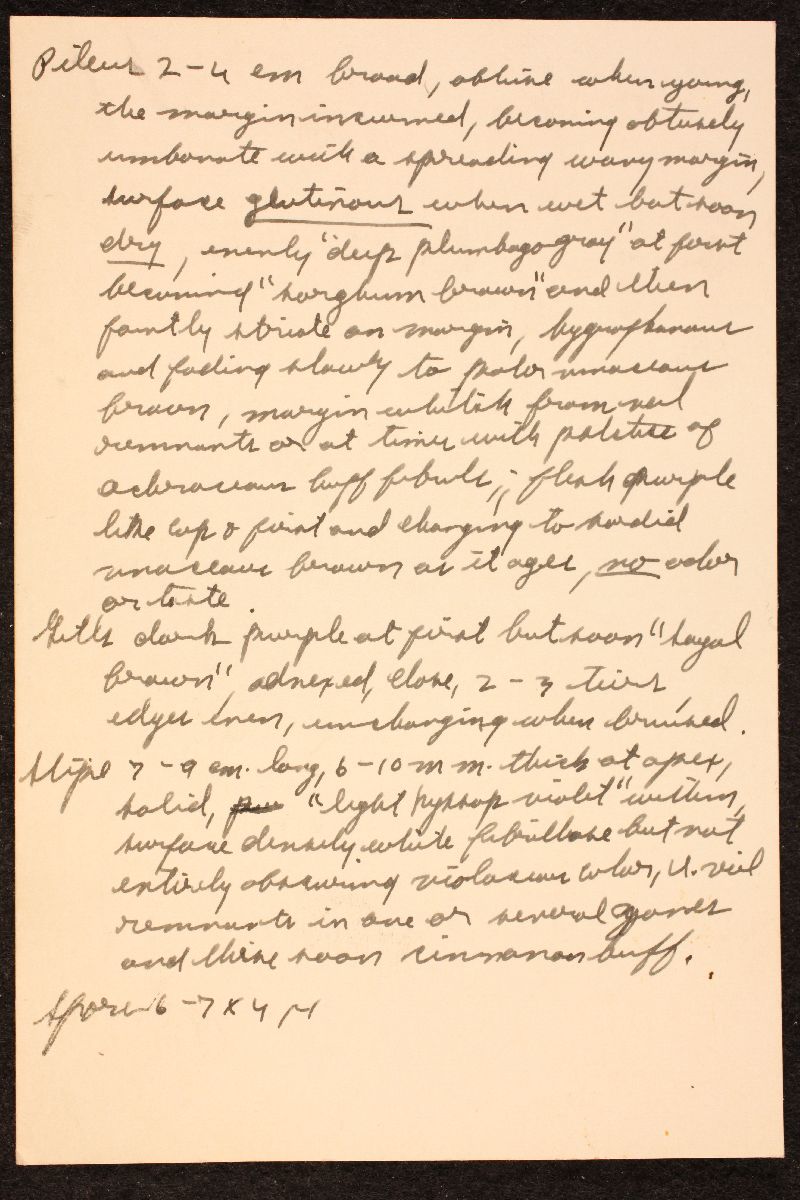 Pileus 2-4 cm broad, obtuse when young,
the margin incurved, becoming obtusely
umbonate with a spreading wavy margin,
surface glutinous when wet but soon
dry, evenly "deep plumbago gray" at first
becoming "sorghum brown" and then
faintly striate on margin, hygrophanous
and fading slowly to paler vinaceous
brown, margin whitish from veil
remnants or at times with patches of
ochraceous buff fibrils; flesh purple
like cap at first and changing to sordid
vinaceous brown as it ages, no odor
or taste.
Gills dark purple at first but soon "sayal
brown", adnexed, close, 2-3 tiers,
edges even, unchanging when bruised.
Stipe 7-9 cm. long, 6-10 m m. thick at apex,
solid, "light hyssop violet" within,
surface densely white fibrillose but not
entirely obscuring violaceous color, U. veil
remnants in one or several zones
and these soon cinnamon buff.
Spores 6-7 x 4 μ